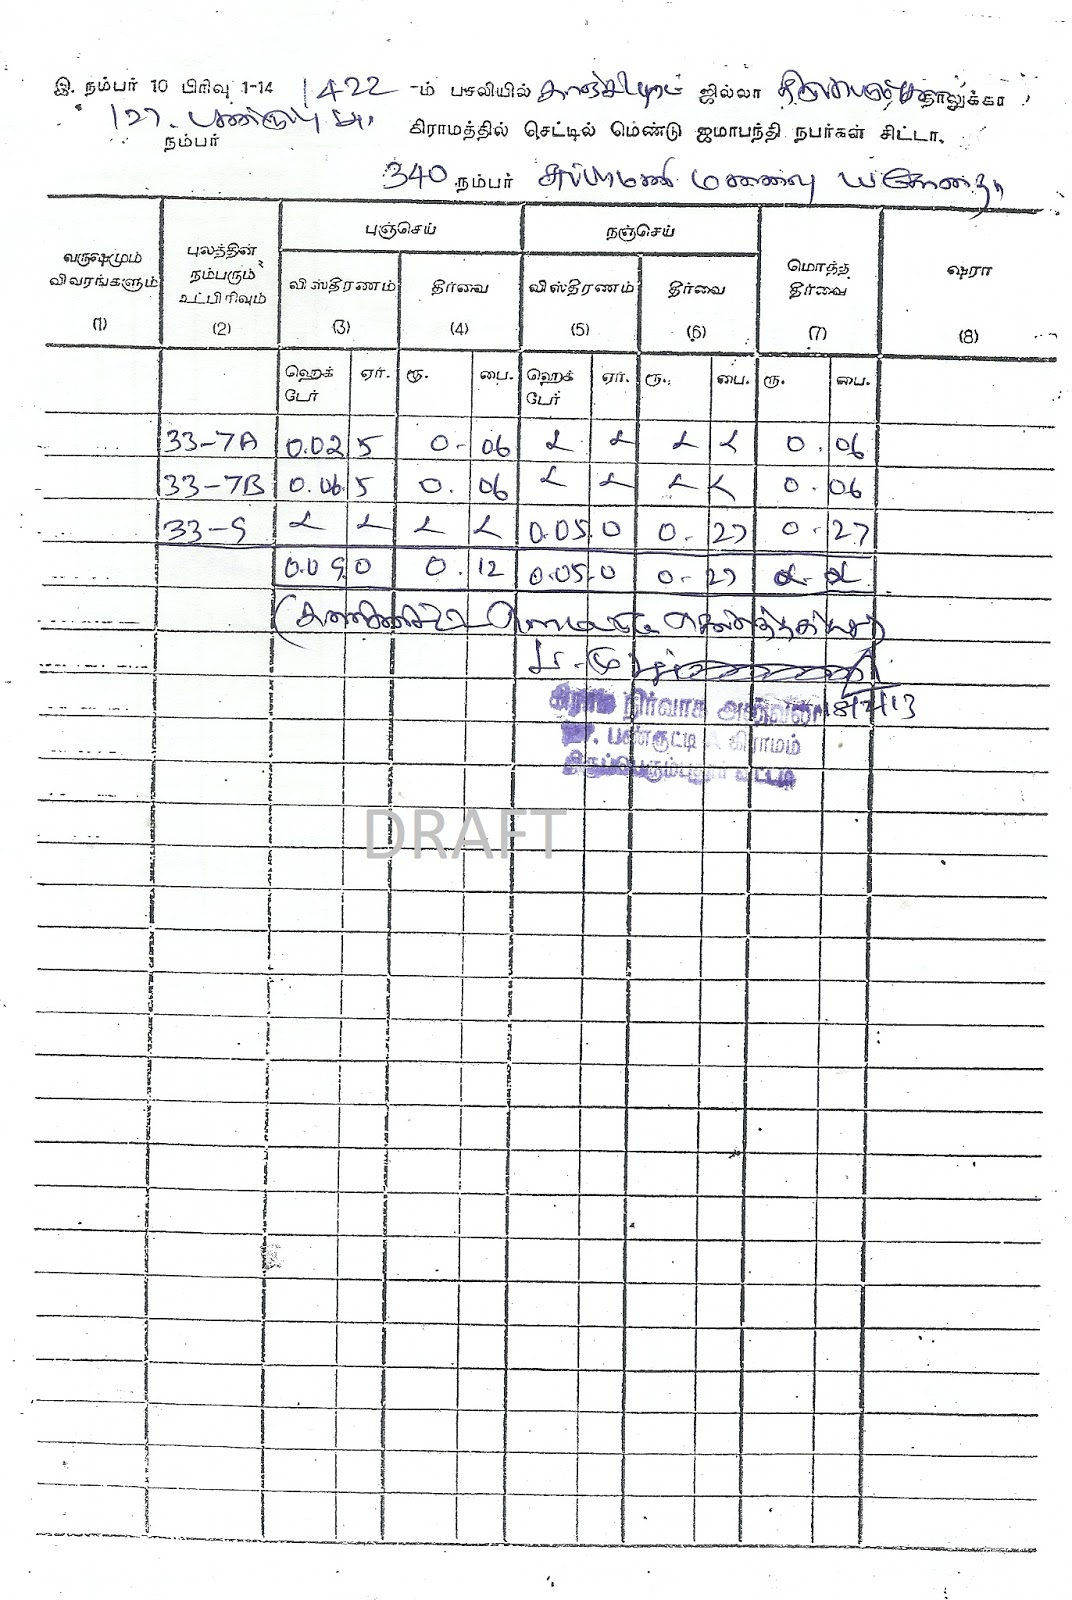 இ. நம்பர் 10 பிரிவு 1-14 1422 -ம் பசலியில் காஞ்சிபுரம் ஜில்லா தாலுக்கா
127. பண்ருட்டி
நம்பர் கிராமத்தில் செட்டில் மெண்டு ஜமாபந்தி நபர்கள் சிட்டா.
340 நம்பர் சுப்பரமணி மனைவி யசோதா
புஞ்செய் நஞ்செய்
வருஷமும் விவரங்களும் புலத்தின் நம்பரும் உட்பிரிவும் விஸ்தீரணம் தீர்வை விஸ்தீரணம் தீர்வை மொத்த தீர்வை ஷரா
(1) (2) (3) (4) (5) (6) (7) (8)
ஹெக்டேர் ஏர். ரூ. பை. ஹெக்டேர் ஏர். ரூ. பை. ரூ. பை.
33-7A 0.02 5 0. 06 0. 06
33-7B 0.06 5 0. 06 0. 06
33-9 0.05. 0 0. 27 0. 27
0.09 0 0. 12 0.05.0 0. 27
கிராம நிர்வாக அலுவலர் 18/7/13
பண்ருட்டி A கிராமம்
திருப்பெரும்புதூர் வட்டம்
DRAFT